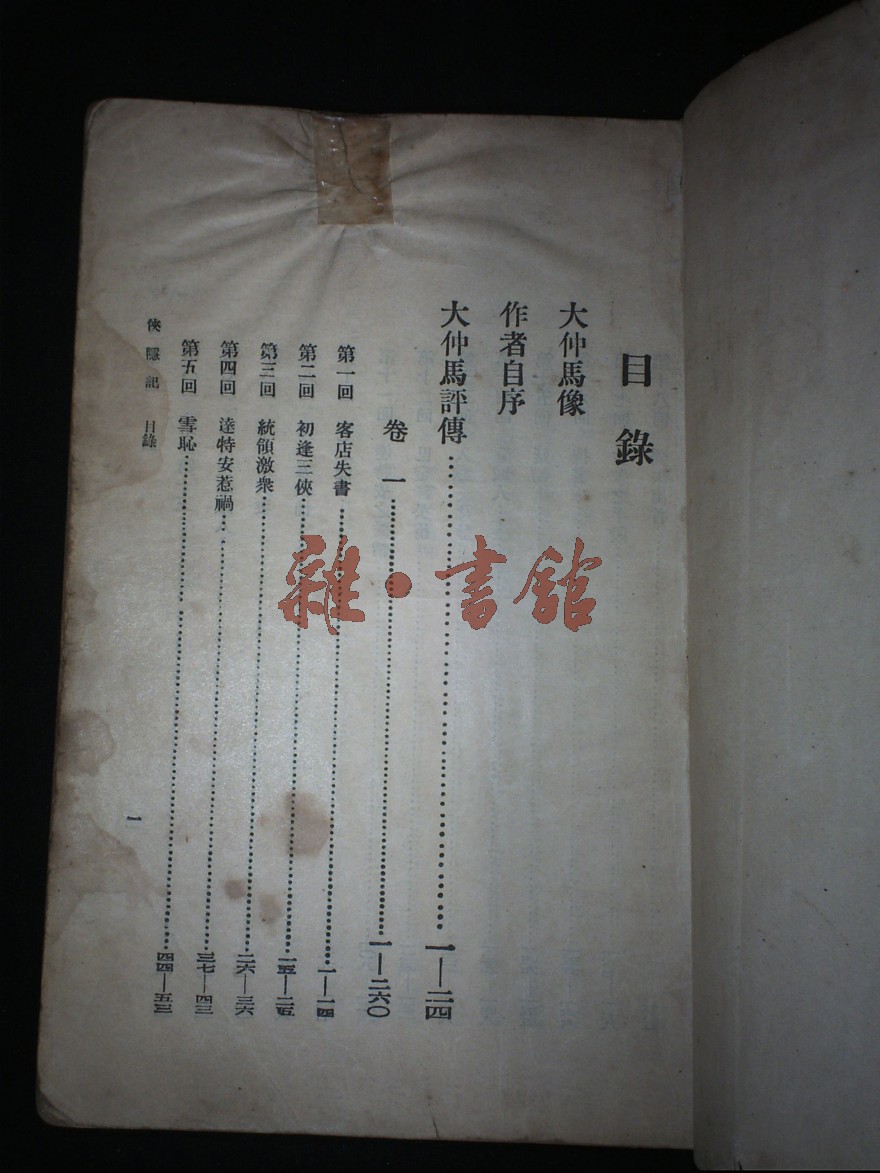 目錄
大仲馬像
作者自序
大仲馬評傳……一—二四
卷一……一—二六〇
第一回 客店失書……一—一四
第二回 初逢三俠……一五—二五
第三回 統領激衆……二六—三六
第四回 達特安惹禍……三七—四三
第五回 雪恥……四四—五三
俠隱記 目錄
一
雜·書館